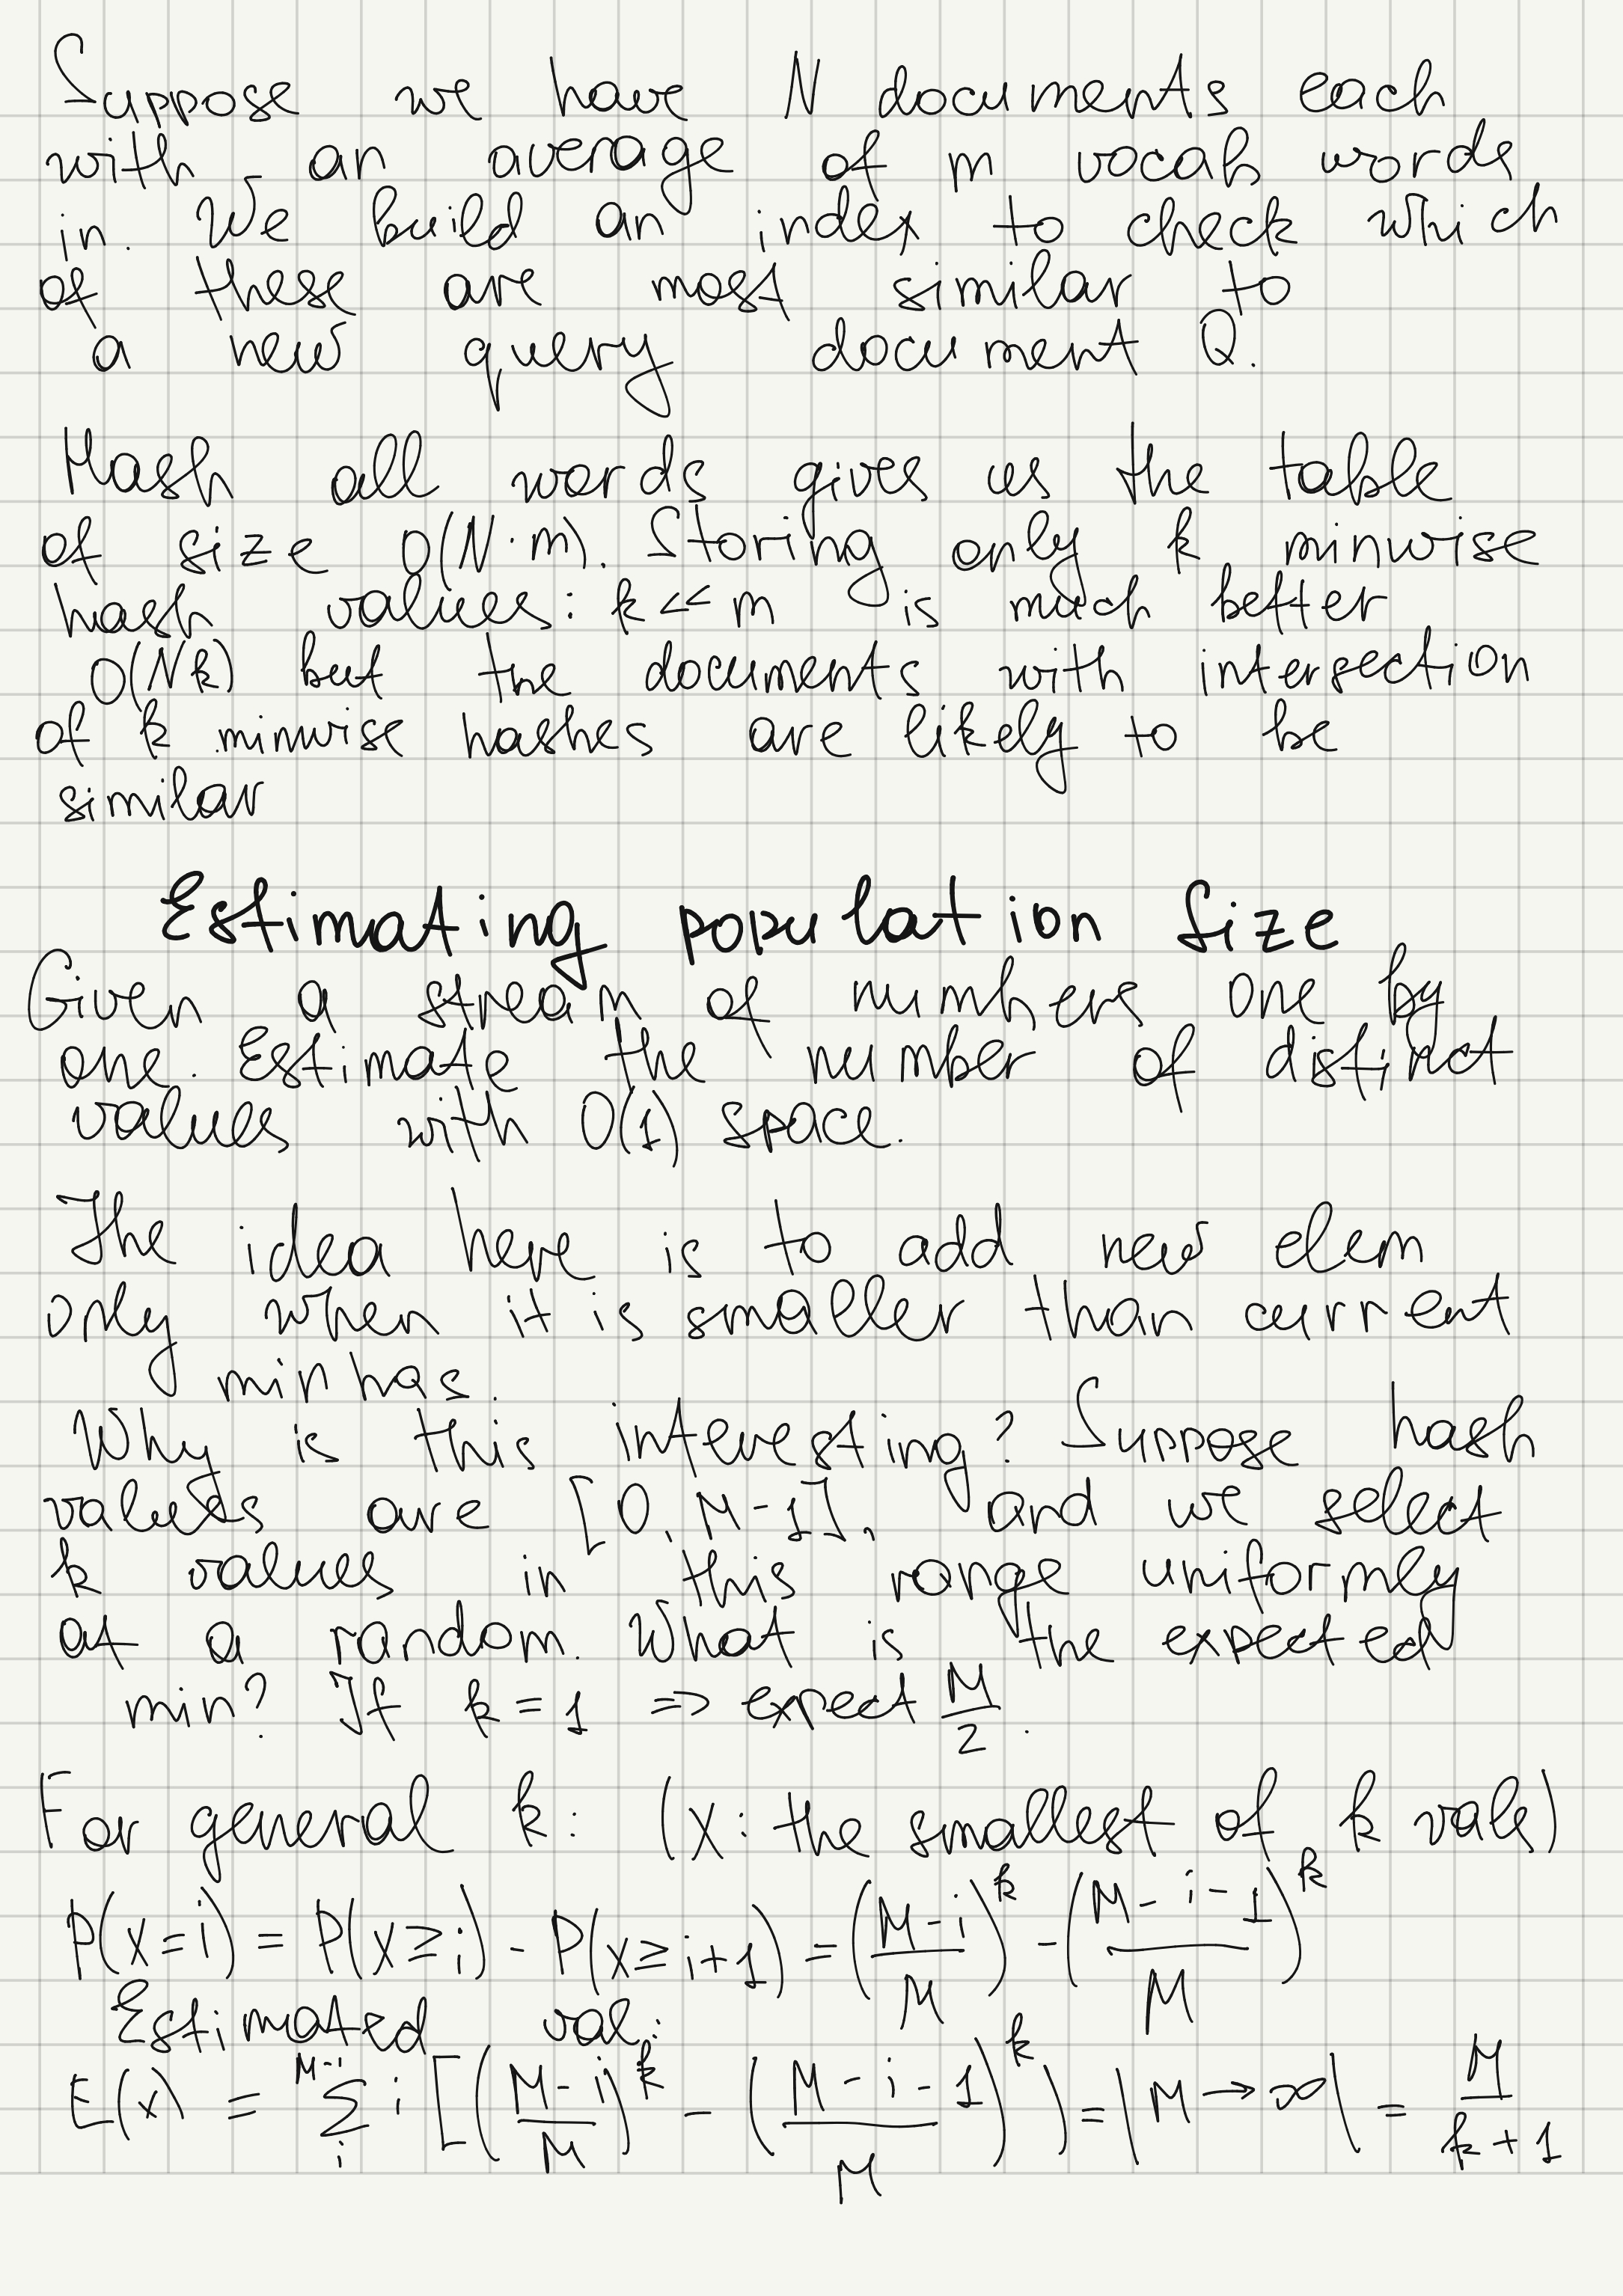 Suppose we have N documents each
with an average of m vocab words
in. We build an index to check which
of these are most similar to
a new query document Q.
Hash all words gives us the table
of size O(N·m). Storing only k minwise
hash values: k << m is much better
O(Nk) but the documents with intersection
of k minwise hashes are likely to be
similar
Estimating population Size
Given a stream of numbers one by
one. Estimate the number of distinct
values with O(1) space.
The idea here is to add new elem
only when it is smaller than current
min has.
Why is this interesting? Suppose hash
values are [0, M-1], and we select
k values in this range uniformly
at a random. What is the expected
min? If k = 1 => expect M/2.
For general k: (X: the smallest of k vals)
P(X=i) = P(X≥i) - P(X≥i+1) = ((M-i)/M)^k - ((M-i-1)/M)^k
Estimated val:
E(x) = Σ_i^{M-1} i [((M-i)/M)^k - ((M-i-1)/M)^k) = |M → ∞| = M/(k+1)